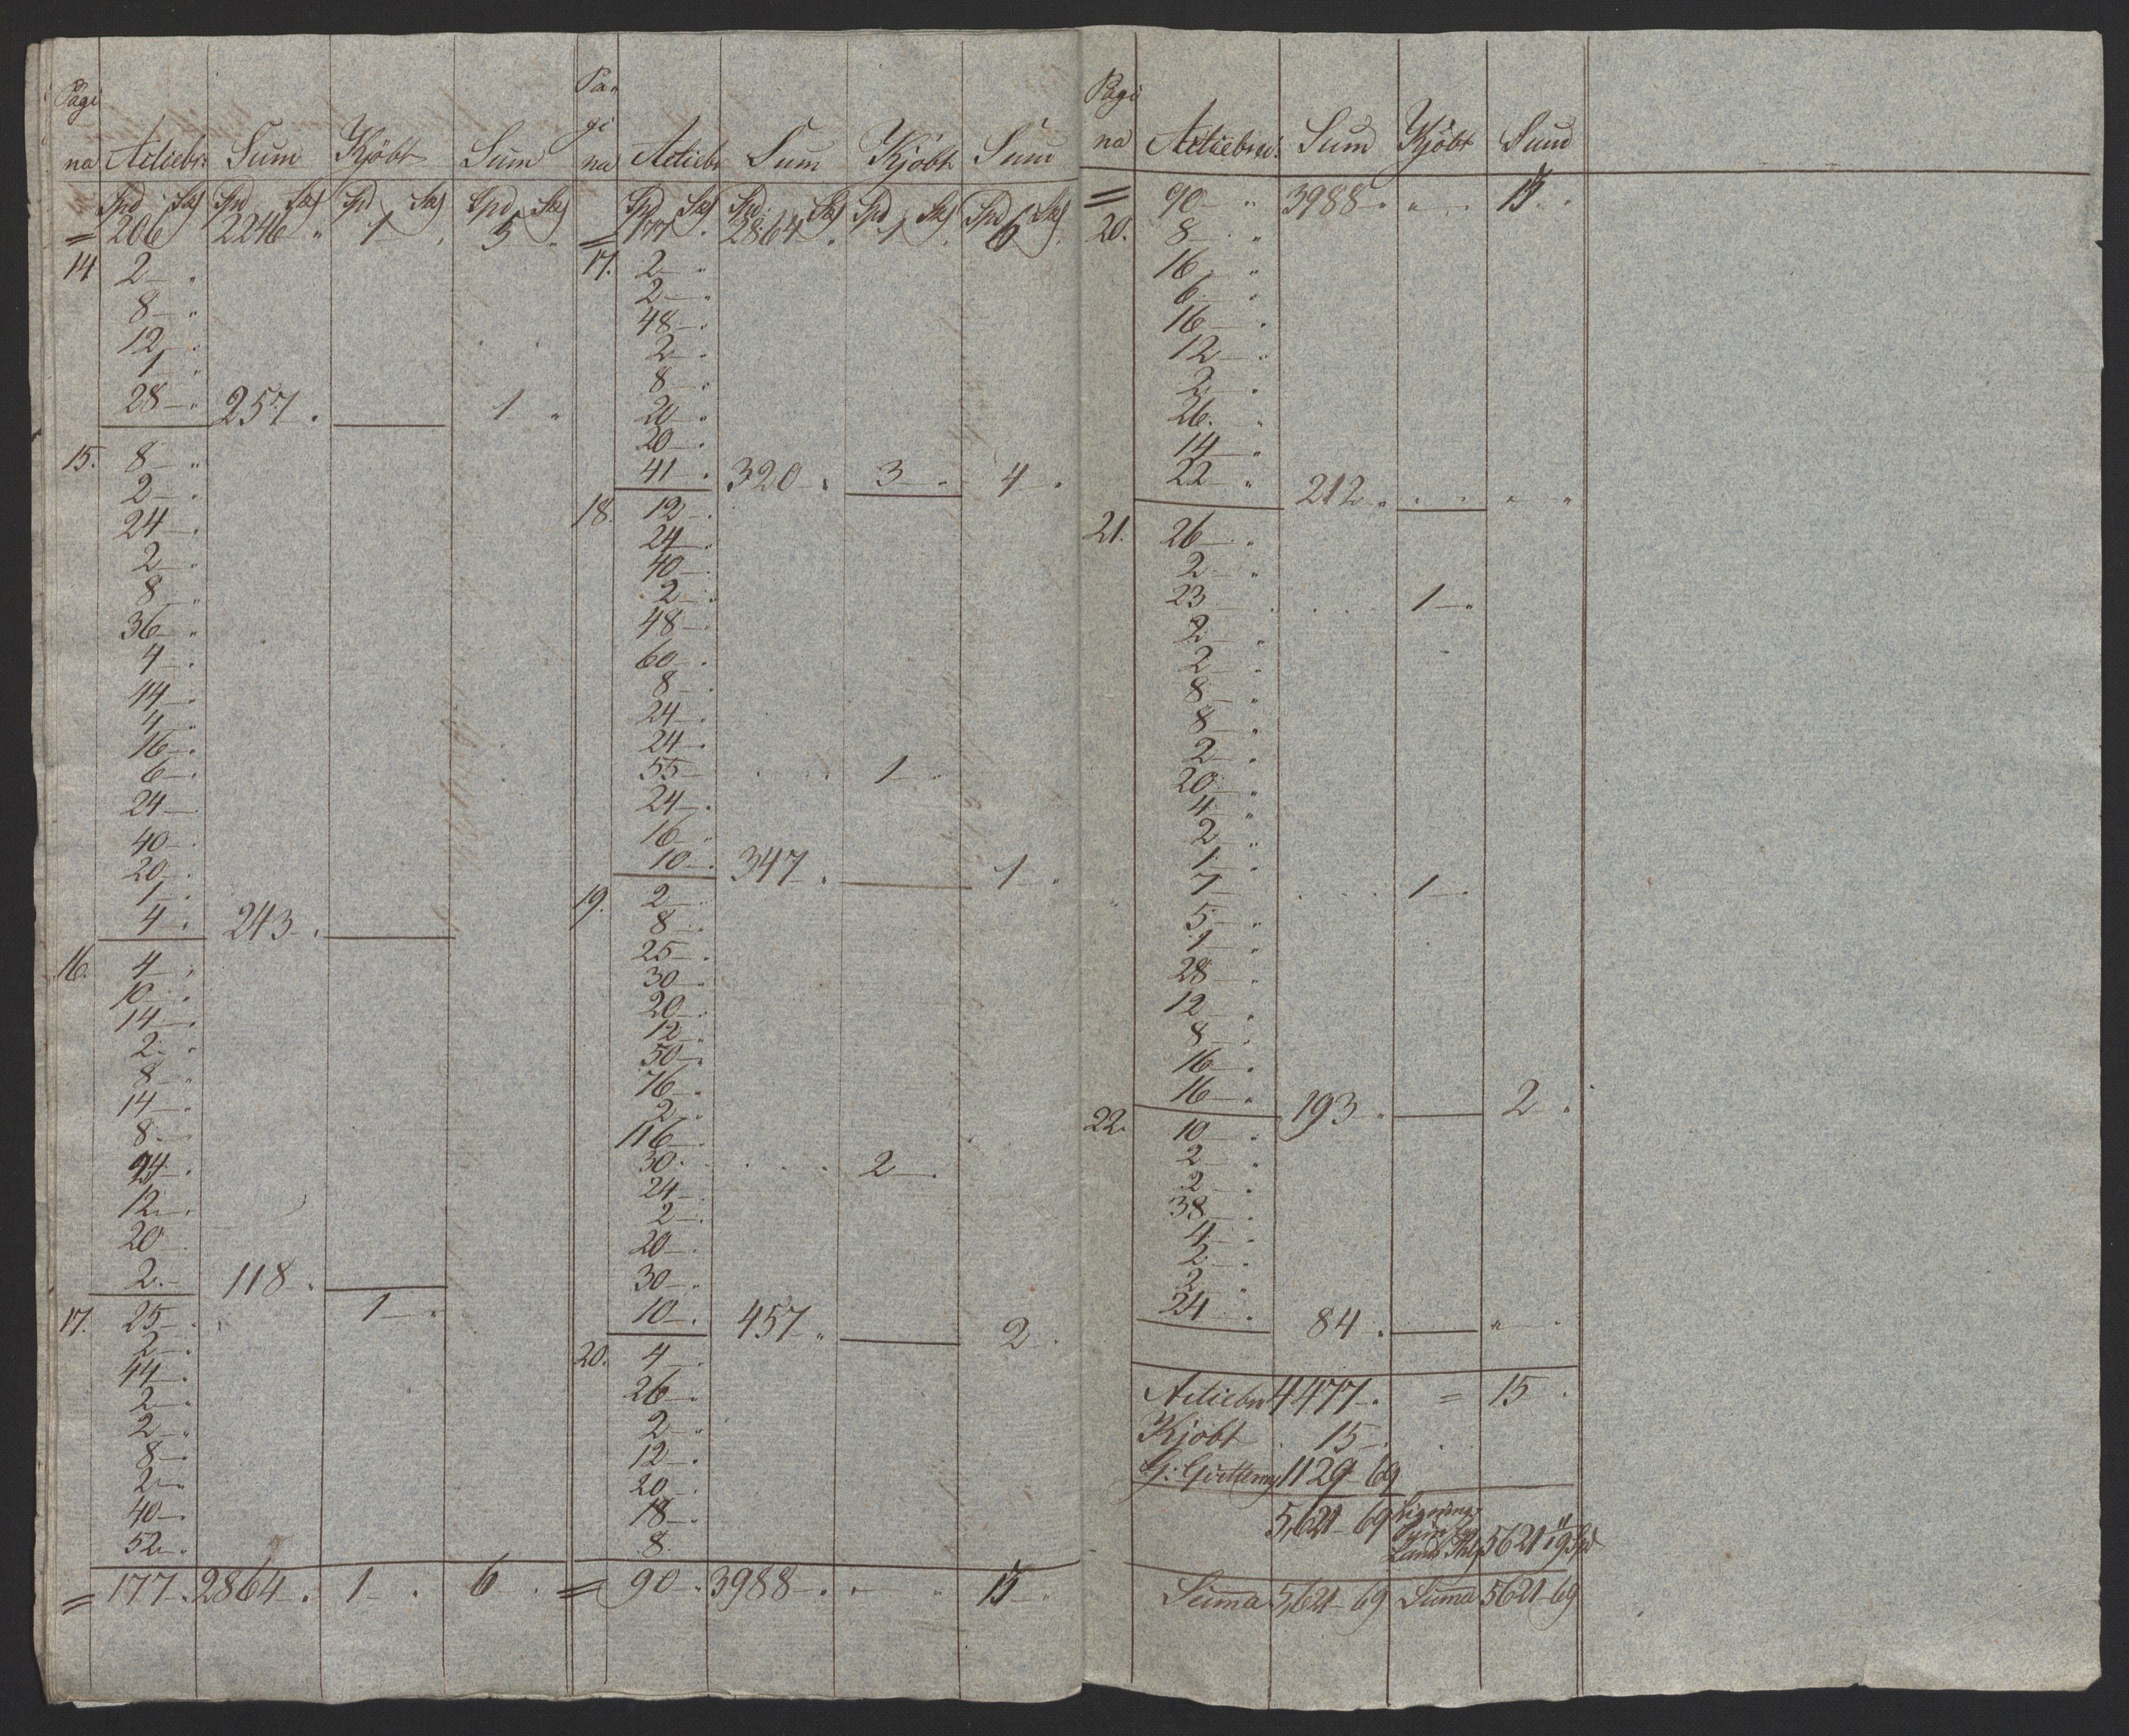 Pagi
na Actiebr: Sum Kjöbt Sum
Spd Sk Spd Sk Spd Sk Spd Sk
= 206 2246 " 1 " 5 "
14. 2 "
8 "
12 "
1 "
28 " 257 . 1 "
15. 8 "
2 "
24 "
2 "
8 "
36 "
4 "
44 "
4 "
16 "
6 "
24
40 "
20 "
1 "
4 " 243 "
16. 4 "
10 "
14 "
2 "
8 "
14 "
8 "
24 "
12 "
20
2 118 "
17. 25 " 1 "
2 "
44 "
2 "
2 "
8 "
2 "
40 "
52 "
= 177 " 2864 " 1 " 6 "
Pa-
gi
na Actiebr Sum Kjöbt Sum
Spd Sk Spd Sk Spd Sk Spd Sk
= 177 " 2864 " 1 " 6 "
17. 2 "
2 "
48 "
2 "
8 "
20 "
20 "
41 " 320 " 3 " 4 "
18. 12 "
24 "
40 "
2 "
48 "
60 "
8 "
24 "
24 "
55 1 "
24 "
16 "
10 " 347 " 1 "
19. 2 "
8 "
25 "
30 "
20 "
12 "
50 "
76 "
2 "
116 "
30 " 2 "
24 "
2 "
20 "
30 "
10 " 457 " 2 "
20. 4 "
26 "
2 "
12 "
20 "
18 "
8
= 90 " 3988 " " " 13 "
Pagi
na Actiebr: Sum Kjöbt Sum
= 90 " 3988 " " " 13 "
20. 8 "
16 "
6 "
16 "
12 "
2 "
26 "
14 "
22 " 212 " " " " "
21. 26 "
2 "
23 1 "
2 "
2 "
8 "
8 "
2 "
20 "
4 "
2 "
1 "
7 1 "
5 "
1 "
28 "
12 "
8 "
16 "
16 " 193 " 2 "
22. 10 "
2 "
2 "
38 "
4 "
2 "
2 "
24 " 84 " " "
Actiebr 4477 " = 15 "
Kjöbt 15 "
1129 - 69
5,621 - 69
5621
Summa 5,621 - 69 Summa 5621 - 69